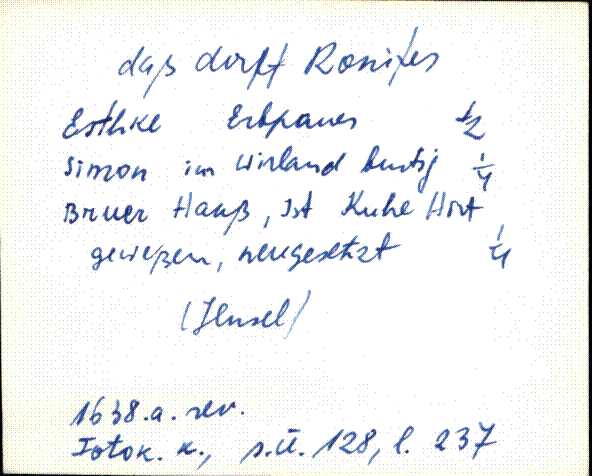 daß dorff Ronifer
Esthke Erbpauer 1/2
Simon im Wirland burtig 1/4
Bruer Hanß, Ist Kuhe Hirt
geweßen, neugesetzt 1/4
(Jensel)
1638.a. rev.
Fotok. k., s.ü. 128, l. 237